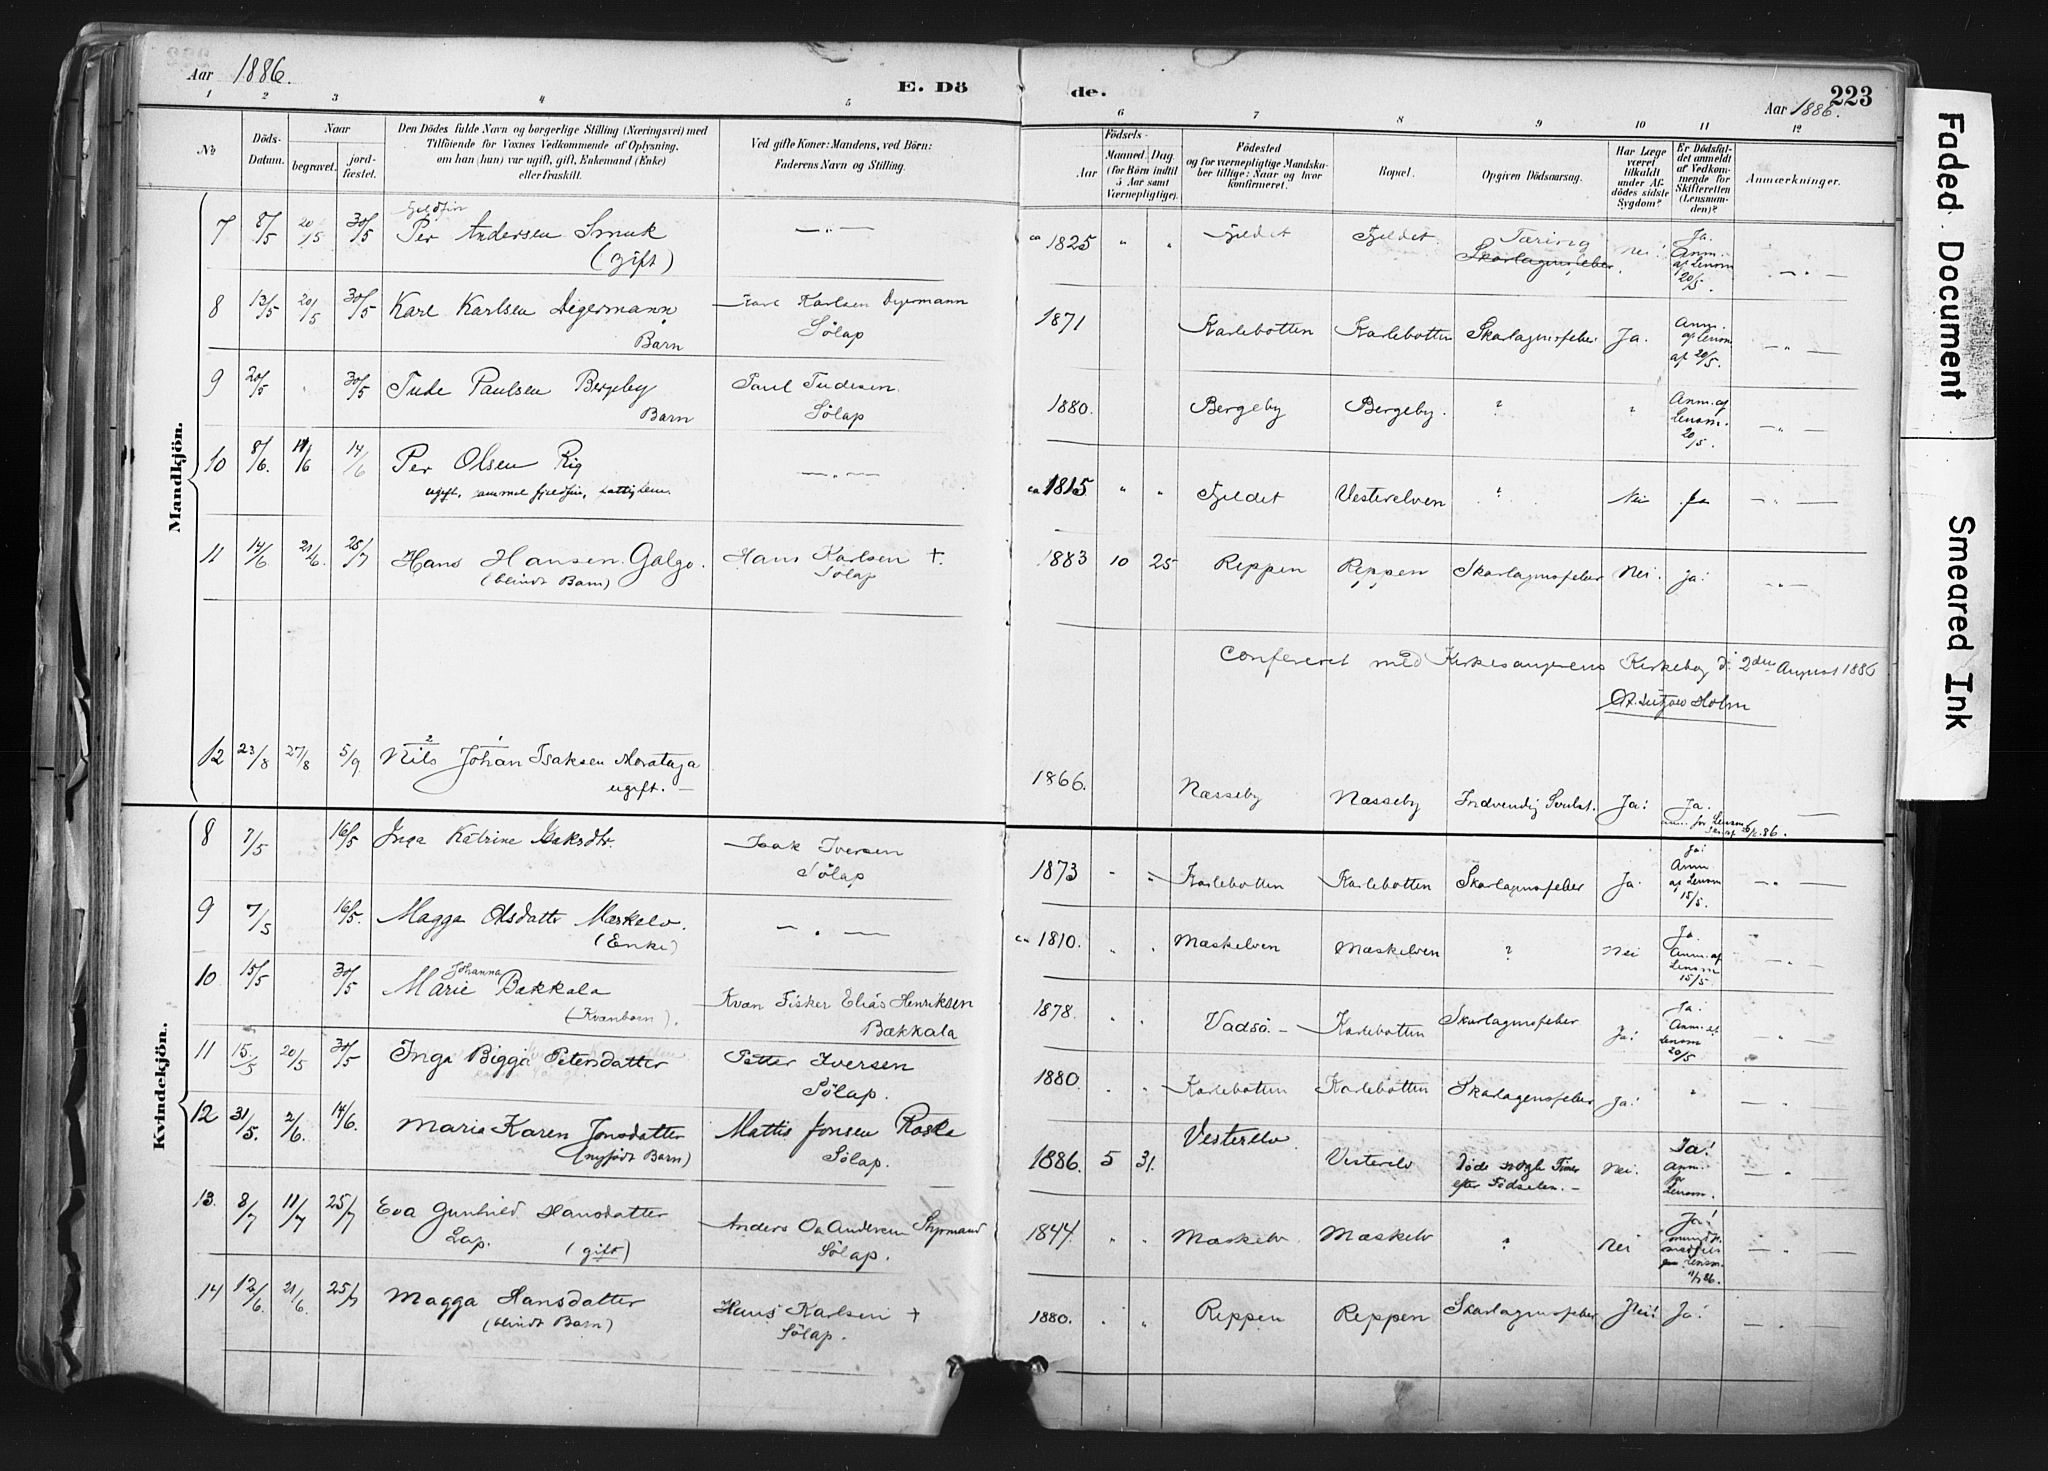 Aar 1886.
E. Dö
de.
223
Aar 1886.
1 2 3 4 5 6 7 8 9 10 11 12
No
Döds-Datum.
Naar
begravet.
jord-fæstet.
Den Dödes fulde Navn og borgerlige Stilling (Næringsvei) med
Tilföiende for Voxnes Vedkommende af Oplysning,
om han (hun) var ugift, gift, Enkemand (Enke)
eller fraskilt.
Ved gifte Koner: Mandens, ved Börn:
Faderens Navn og Stilling.
Födsels-
Aar
Maaned. Dag
(for Börn indtil
5 Aar samt
Værnepligtige).
Födested
og for værnepligtige Mandska-
ber tillige: Naar og hvor
konfirmeret.
Bopæl.
Opgiven Dödsaarsag.
Har Læge
været
tilkaldt
under Af-
dödes sidste
Sygdom?
Er Dödsfal-
det anmeldt
af Vedkom-
mende for
Skifteretten
(Lensman-
den)?
Anmærkninger.
Mandkjön.
7 8/5 20/5 30/5 Fjeldfin Per Andersen Smuk (gift) — " — ca 1825 " " Fjeldet Fjeldet. Tæring Skarlagensfeber. Nei! Ja. Anm. af Lensm 20/5. — " —
8 13/5 20/5 30/5 Karl Karlsen Digermann Barn Karl Karlsen Digermann Sölap 1871 Karlebotten Karlebotten Skarlagensfeber Ja. Anm. af Lensm af 20/5. — " —
9 20/5 30/5 Tude Paulsen Bergeby Barn Paul Tudesen Sölap 1880. Bergeby Bergeby. ? " Anm. af Lensm. 20/5. — " —
10 8/6. 11/6 14/6 Per Olsen Rig ugift, gammel fjeldfin, fattiglem. — " — ca 1815 " " Fjeldet Vesterelven ? Nei Ja — " —
11 14/6 21/6. 25/7 Hans Hansen Galgo. (blindt Barn) Hans Karlsen +. Sölap 1883 10 25 Reppen Reppen Skarlagensfeber Nei. Ja! — " —
Confereret med Kirkesangerens Kirkebog d. 2den August 1886
Holm
12 23/8 27/8 5/9. 2 Nils 1 Johan Isaksen ugift. — 1866. Næsseby Næsseby Indvendig Svulst. Ja! Ja. for Lensm. 86. —
Kvindekjön.
8 7/5 16/5 Inga Katrine Isaksdtr. Isak Iversen Sölap 1873 " " Karlebotten Karlebotten Skarlagensfeber Ja. Ja! Anm. af Lensm 15/5. — " —
9 7/5 16/5. Magga Olsdattr Mæskelv. (Enke) — " — ca 1810. " " Mæskelven Mæskelven ? Nei Ja. Anm. af Lensm 15/5. — " —
10 15/5 30/5 Johanna Marie Bækkala (Kvanbarn). Kvæn Fisker Elias Henriksen Bækkala 1878. " " Vadsö. — Karlebotten Skarlagensfeber Ja! Ja! Anm. af Lensm 20/5 — " —
11 15./5 20/5 30/5 Inga Bigga Petersdatter Petter Iversen Sölap. 1880. " " Karlebotten Karlebotten Skarlagensfeber Ja! " — " —
12 31/5. 2/6. 14/6. Maria Karen Jonsdatter (nyfödt Barn) Mattis Jonsen Roska Sölap. 1886. 5 31. Vesterelv Vesterelv Döde nogle Timer efter Födselen. — Nei. Ja! Anm. for Lensm. — " —
13. 8/7 11/7 25/7 Eva Gunhild Hansdatter Lap. (gift) Anders Andersen Sölap. 1844. " " Mæskelv Mæskelv ? Nei Ja! Lensm. — " —
14 12/6. 21/6. 25/7 Magga Hansdatter (blindt Barn) Hans Karlsen + Sölap. 1880. " " Reppen Reppen Skarlagensfeber Nei! Ja! — " —
Faded Document
Smeared Ink